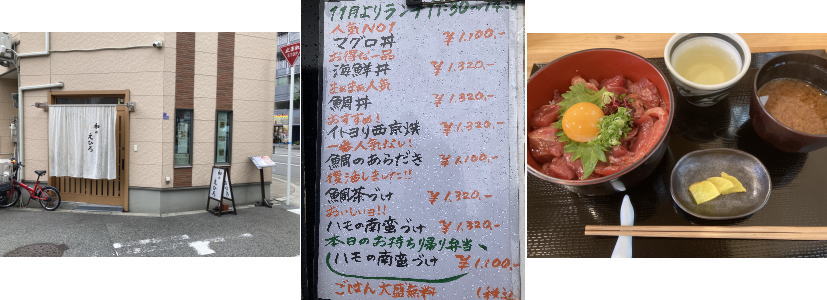 和のえひろ
止まれ
11月よりランチ11:30〜14:0
人気NO1
マグロ丼 ¥1.100,-
お得な一品
海鮮丼 ¥1.320,-
まぁまぁ人気
鯛丼 ¥1.320,-
おすすめ!
イトヨリ西京焼 ¥1.320,-
一番人気ない!
鯛のあらだき ¥1.100,-
復活しました!!
鯛茶づけ ¥1.320,-
おいしいョ!!
ハモの南蛮づけ ¥1.320,-
本日のお持ち帰り弁当
ハモの南蛮づけ ¥1.100,-
ごはん大盛無料 (税込